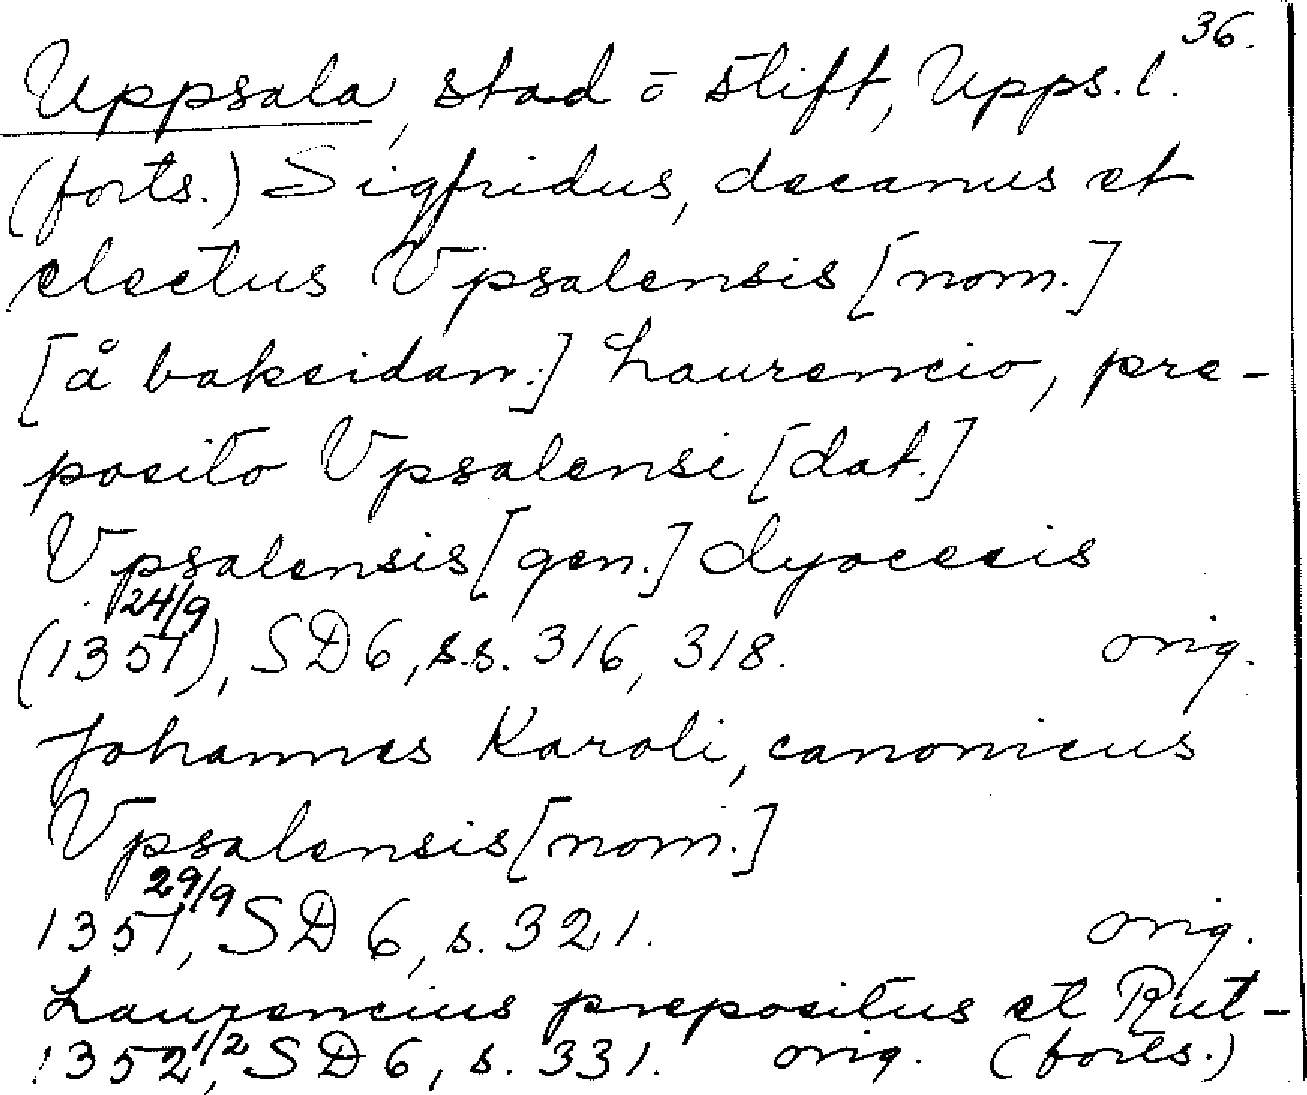 36.
Uppsala, stad o stift, Upps. l.
(forts.) Sigfridus, decanus et
electus Vpsalensis [nom.]
[å baksidan:] Laurencio, pre-
posito Vpsalensi [dat.]
Vpsalensis [gen.] dyocesis
24/9
(1351), SD 6, s.s. 316, 318. orig.
Johannes Karoli, canonicus
Vpsalensis [nom.]
29/9
1351, SD 6, s. 321. orig.
Laurencius prepositus et Rut-
1352 1/2, SD 6, s. 331. orig. (forts.)